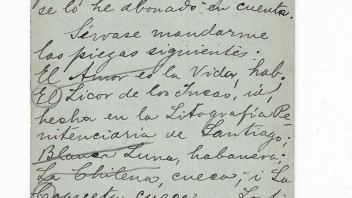 se ló he abonado en cuenta.
Sírvase mandarme
las piezas siguientes:
El Amor es la Vida, hab.
El Licor de los Incas, id,
hecha en la Litografía Pe
nitenciaria de Santiago;
Blanca Luna, habanera;
La Chilena, cueca; i La
cueca